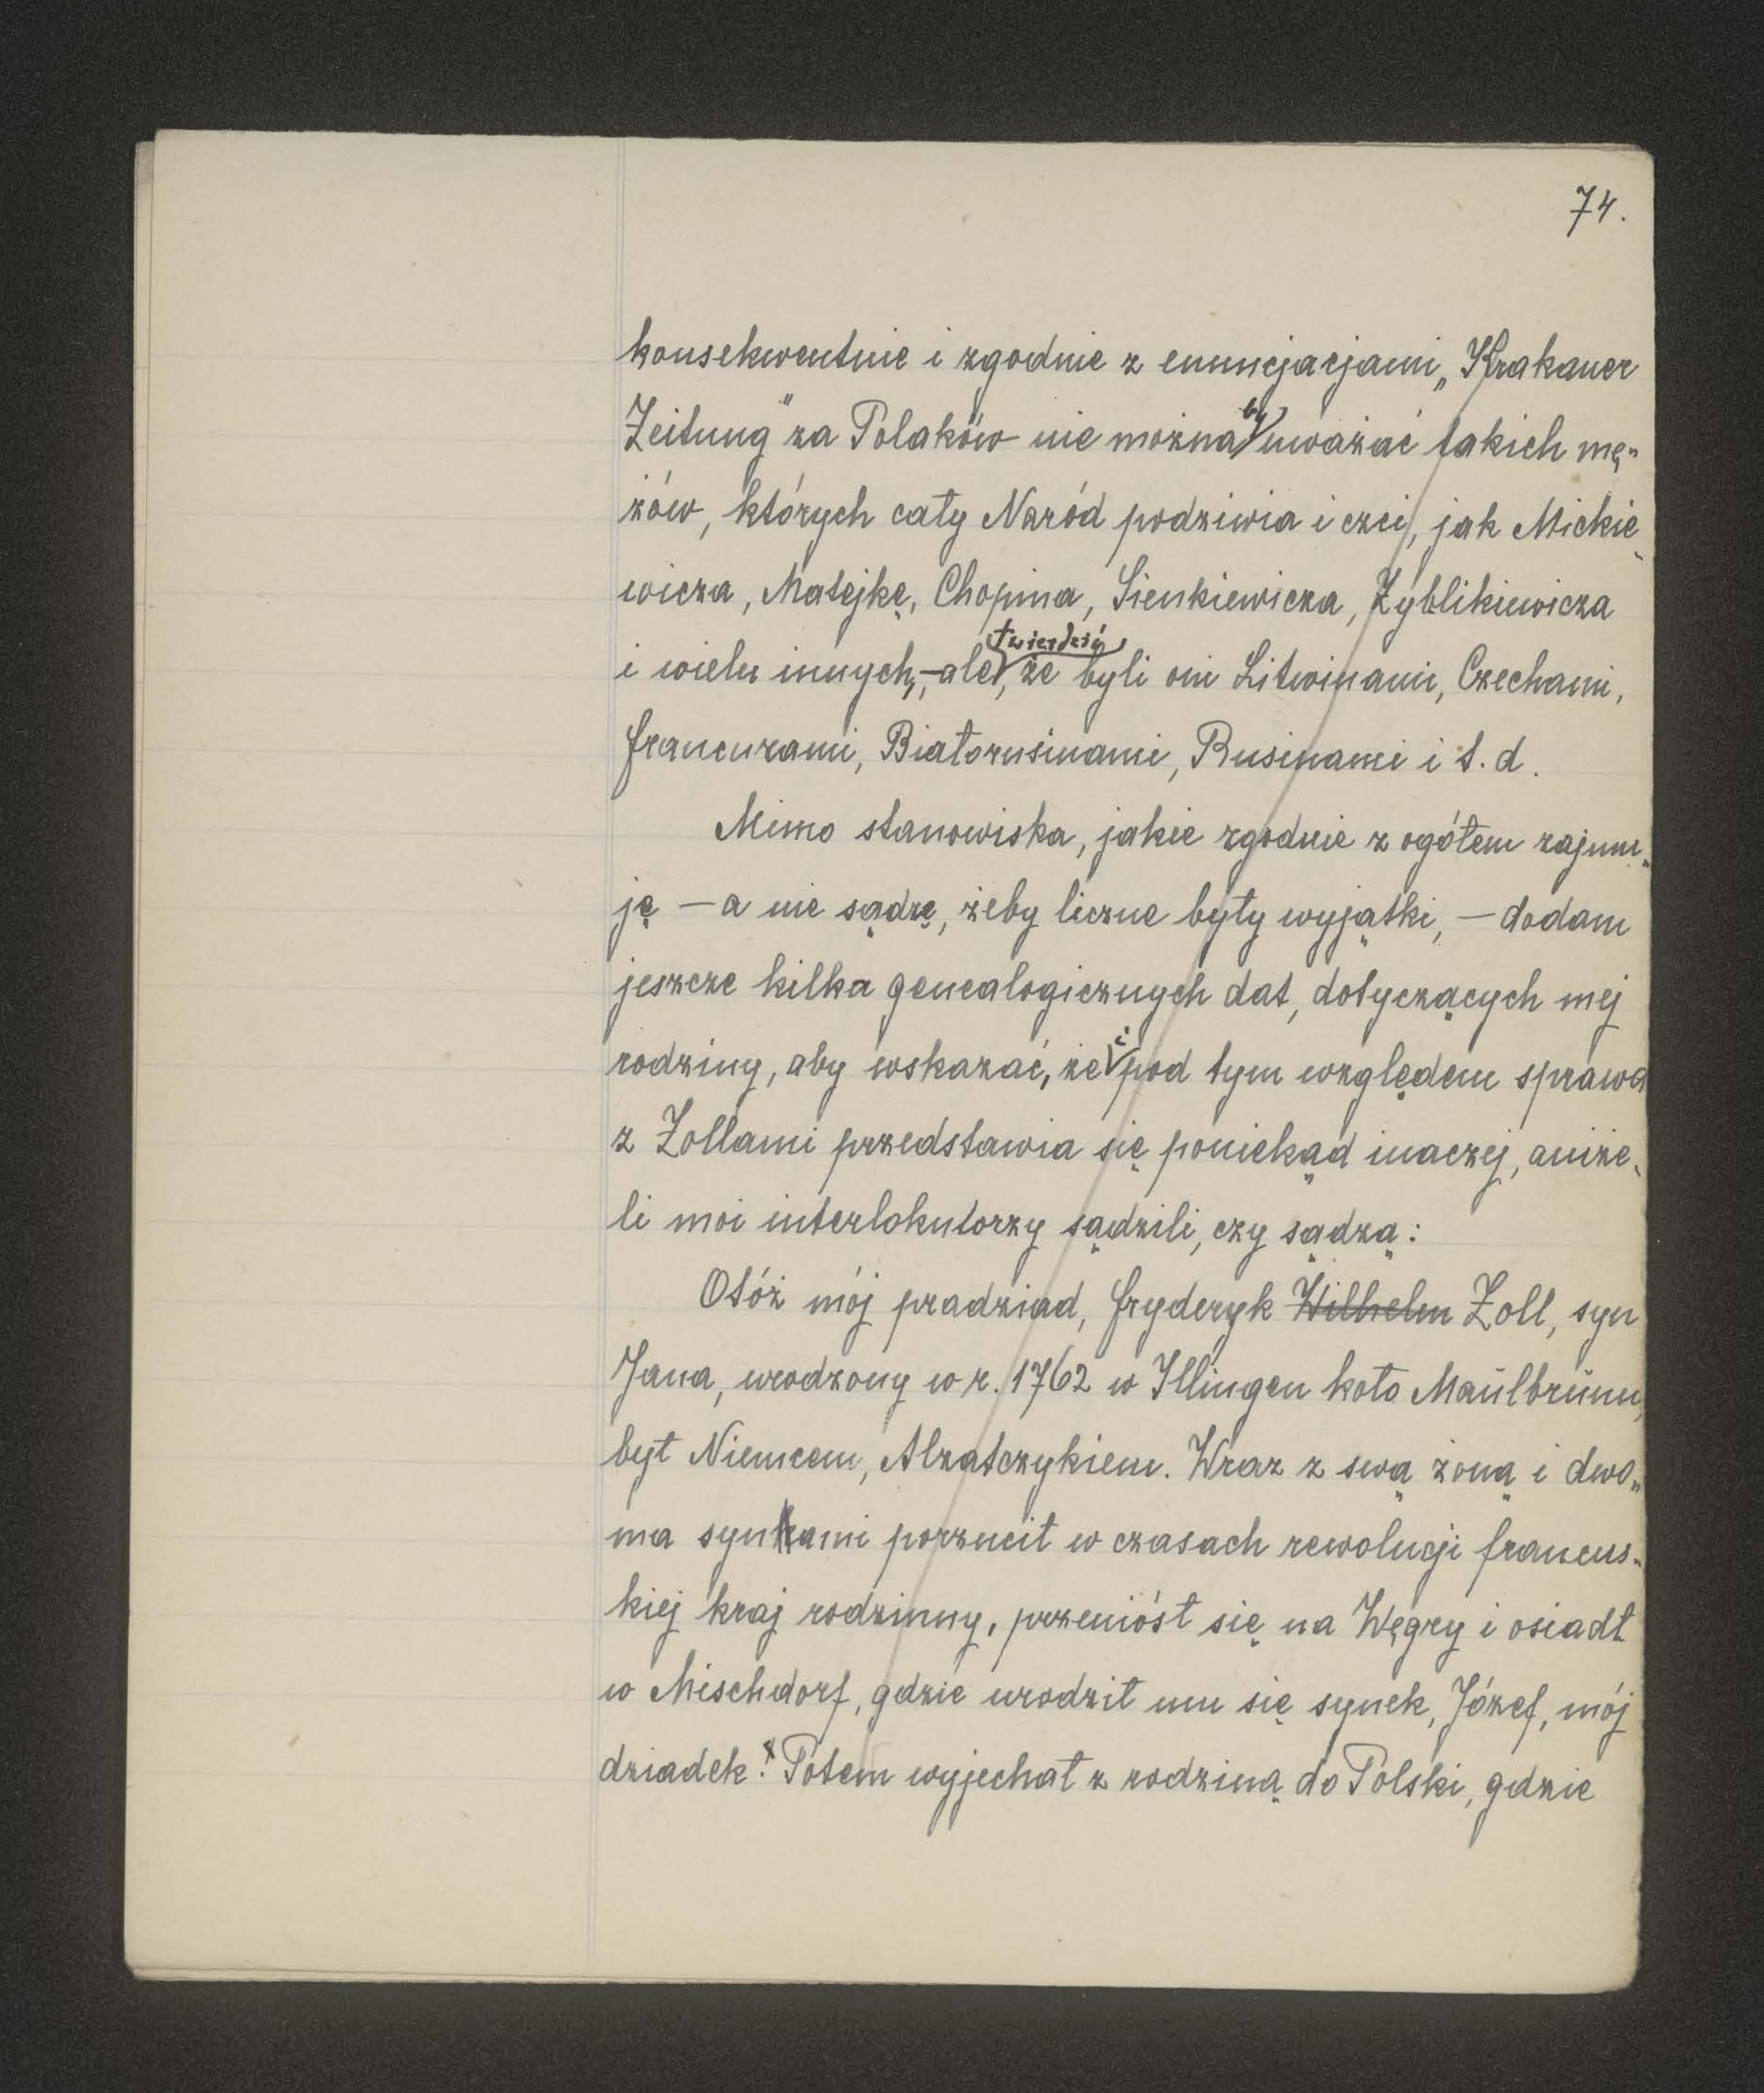 74.
konsekwentnie i zgodnie z enuncjacjami „Krakauer
Zeitung” za Polaków nie można by uważać takich mę„
żów, których cały Naród podziwia i czci, jak Mickie„
wicza, Matejkę, Chopina, Sienkiewicza, Zyblikiewicza
i wielu innych, – ale twierdzić, że byli oni Litwinami, Czechami,
Francuzami, Białorusinami, Rusinami i t. d.
Mimo stanowiska, jakie zgodnie z ogółem zajmu„
ję – a nie sądzę, żeby liczne były wyjątki, – dodam
jeszcze kilka genealogicznych dat, dotyczących mej
rodziny, aby wskazać, że i pod tym względem sprawa
z Zollami przedstawia się poniekąd inaczej, aniże„
li moi interlokutorzy sądzili, czy sądzą:
Otóż mój pradziad, Fryderyk Wilhelm Zoll, syn
Jana, urodzony w r. 1762 w Illingen koło Maŭlbrŭnn,
był Niemcem, Alzatczykiem. Wraz z swą żoną i dwo„
ma synami porzucił w czasach rewolucji francus„
kiej kraj rodzinny, przeniósł się na Węgry i osiadł
w Mischdorf, gdzie urodził mu się synek, Józef, mój
dziadek. x Potem wyjechał z rodziną do Polski, gdzie